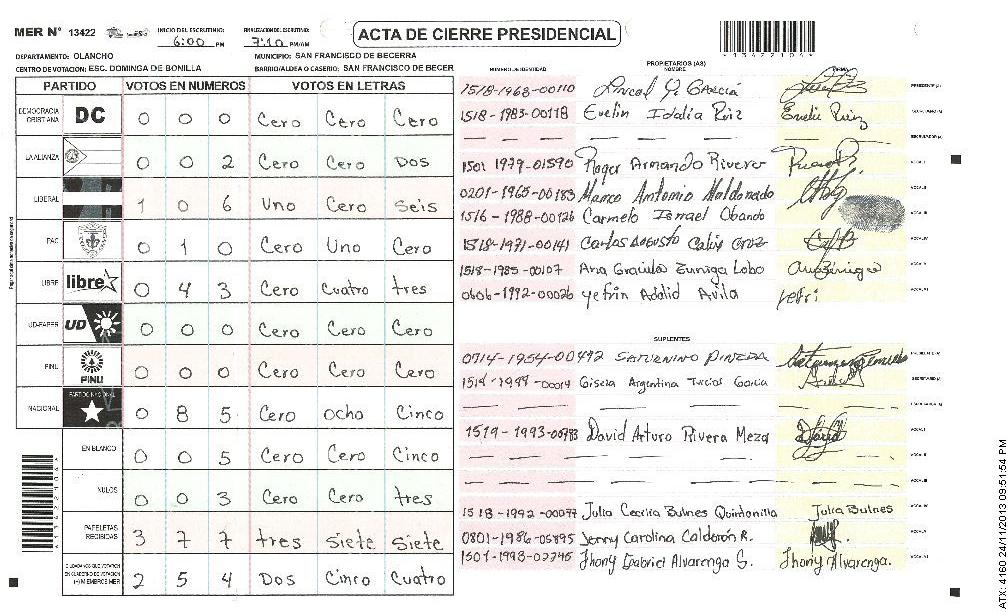 MER N° 13422 INICIO DEL ESCRUTINIO: 6:00 PM FINALIZACION DEL ESCRUTINIO: 7:10 PM/AM
ACTA DE CIERRE PRESIDENCIAL
DEPARTAMENTO: OLANCHO MUNICIPIO: SAN FRANCISCO DE BECERRA
CENTRO DE VOTACION: ESC. DOMINGA DE BONILLA BARRIO/ALDEA O CASERIO: SAN FRANCISCO DE BECER
PARTIDO VOTOS EN NUMEROS VOTOS EN LETRAS
DEMOCRACIA CRISTIANA DC 0 0 0 Cero Cero Cero
LA ALIANZA 0 0 2 Cero Cero Dos
LIBERAL 1 0 6 Uno Cero Seis
PAC 0 1 0 Cero Uno Cero
LIBRE libre 0 4 3 Cero Cuatro tres
UD-FAPER UD 0 0 0 Cero Cero Cero
PINU PINU 0 0 0 Cero Cero Cero
NACIONAL PARTIDO NACIONAL 0 8 5 Cero ocho Cinco
EN BLANCO 0 0 5 Cero Cero Cinco
NULOS 0 0 3 Cero Cero tres
PAPELETAS RECIBIDAS 3 7 7 tres Siete Siete
CIUDADANOS QUE VOTARON EN CUADERNO DE VOTACION (+) MIEMBROS MER 2 5 4 Dos Cinco Cuatro
PROPIETARIOS (AS)
NUMERO DE IDENTIDAD NOMBRE FIRMA
1518-1968-00110 García PRESIDENTE (A)
1518-1983-00118 Evelin Idalia Ruiz Evelin Ruiz SECRETARIO (A)
ESCRUTADOR (A)
1501 1979-01590 Roger Armando Rivera VOCAL I
0201-1965-00183 Marco Antonio Maldonado VOCAL II
1516-1988-00126 Carmelo Ismael Obando VOCAL III
1518-1971-00141 Carlos Augusto Cruz VOCAL IV
1518-1985-00107 Ana Graciela Zuniga Lobo VOCAL V
0606-1992-00026 Yefrin Adalid Avila yefri VOCAL VI
SUPLENTES
0714-1954-00492 SATURNINO PINEDA PRESIDENTE (A)
Gisela Argentina Turcios Garcia SECRETARIO (A)
ESCRUTADOR (A)
David Arturo Rivera Meza David VOCAL I
VOCAL II
VOCAL III
1518-1992-00077 Julia Cecilia Bulnes Quintanilla Julia Bulnes VOCAL IV
0801-1986-05895 Jenny Carolina Calderón R. VOCAL V
Jhony Gabriel Alvarenga S. Jhony Alvarenga. VOCAL VI
ATX: 4160 24/11/2013 09:51:54 PM